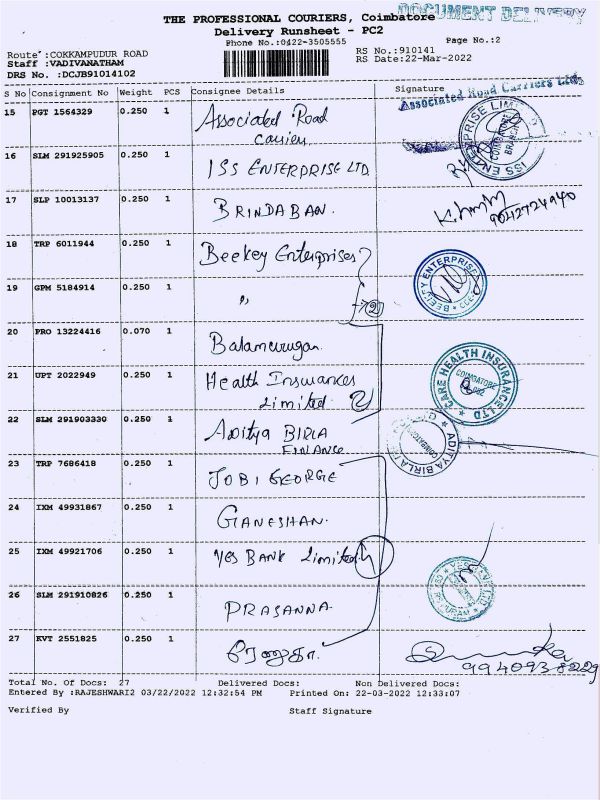 THE PROFESSIONAL COURIERS, Coimbatore
DOCUMENT DELIVERY
Delivery Runsheet - PC2
Phone No.:0422-3505555
Page No.:2
Route :COKKAMPUDUR ROAD
RS No.:910141
Staff :VADIVANATHAM
RS Date:22-Mar-2022
DRS No. :DCJB91014102
S No Consignment No Weight PCS Consignee Details Signature
15 PGT 1564329 0.250 1 Associated Road Carriers
Associated Road Carriers Ltd.
16 SLM 291925905 0.250 1 ISS ENTERPRISE LTD
ISS ENTERPRISE LIMITED COIMBATORE BRANCH
17 SLP 10013137 0.250 1 BRINDABAN.
9042724940
18 TRP 6011944 0.250 1 Beekey Enterprises
19 GPM 5184914 0.250 1 "
2
BEEKEY ENTERPRISES
20 PRO 13224416 0.070 1 Balamurugan
21 UPT 2022949 0.250 1 Health Insurances
Limited 2
CARE HEALTH INSURANCE LTD COIMBATORE
22 SLM 291903330 0.250 1 Aditya BIRLA
FINANCE
ADITYA BIRLA
23 TRP 7686418 0.250 1 JOBI GEORGE
24 IXM 49931867 0.250 1 GANESHAN.
25 IXM 49921706 0.250 1 YES BANK Limited
26 SLM 291910826 0.250 1 PRASANNA.
27 KVT 2551825 0.250 1 ரேணுகா.
9940938229
Total No. Of Docs: 27 Delivered Docs: Non Delivered Docs:
Entered By :RAJESHWARI2 03/22/2022 12:32:54 PM Printed On: 22-03-2022 12:33:07
Verified By Staff Signature